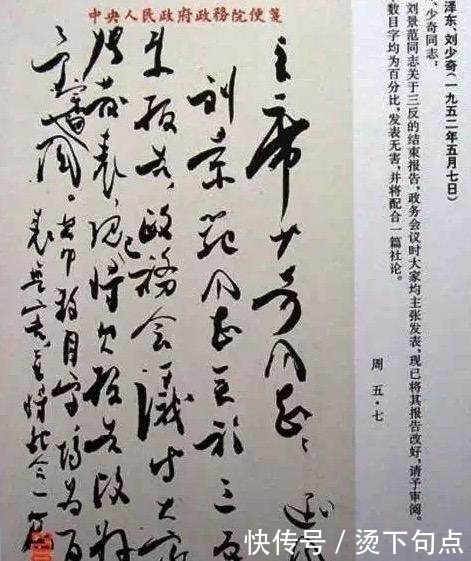 中央人民政府政务院便笺
泽东、刘少奇(一九五二年五月七日)
、少奇同志:
刘景范同志关于三反的结束报告,政务会议时大家均主张发表,现已将其报告改好,请予审阅。
数目字均为百分比,发表无害,并将配合一篇社论。
周 五·七
主席、少奇同志:
刘景范同志关于三反
束报告,政务会议时大家
张发表,现已将其报告改好
予审阅。其中数目字均为百
表无害,并将配合一篇
快传号 / 烫下句点